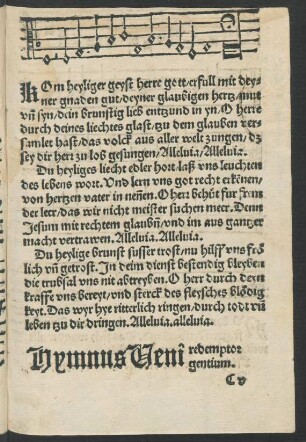 KOm heyliger geyst herre gott/erfull mit dey-
ner gnaden gut/deyner glaubigen hertz/mut
vñ syn/dein brunstig lieb entzund in yn/O herr
durch deines liechtes glast/tzu dem glauben ver-
samlet hast/das volck aus aller welt zungen/dz
sey dir herr zu lob gesungen/Alleluia/Alleluia.
Du heyliges liecht edler hort/laß vns leuchten
des lebens wort. Vnd lern vns got recht erkēnen/
von hertzen vater in neñen. O herr behüt fur frem
der leer/das wir nicht meister suchen meer. Denn
Jesum mit rechtem glaubñ/vnd im aus gantzer
macht vertrawen. Alleluia. Alleluia.
Du heylige brunst susser trost/nu hilff vns frö
lich vñ getrost. In deim dienst bestendig bleyben
die trubsal vns nit abtreyben. O herr durch dein
krafft vns bereyt/vnd sterck des fleysches blödig
keyt. Das wyr hye ritterlich ringen/durch todt vñ
leben tzu dir dringen. Alleluia. alleluia.
Hymnus Veni redemptor
gentium.
C v